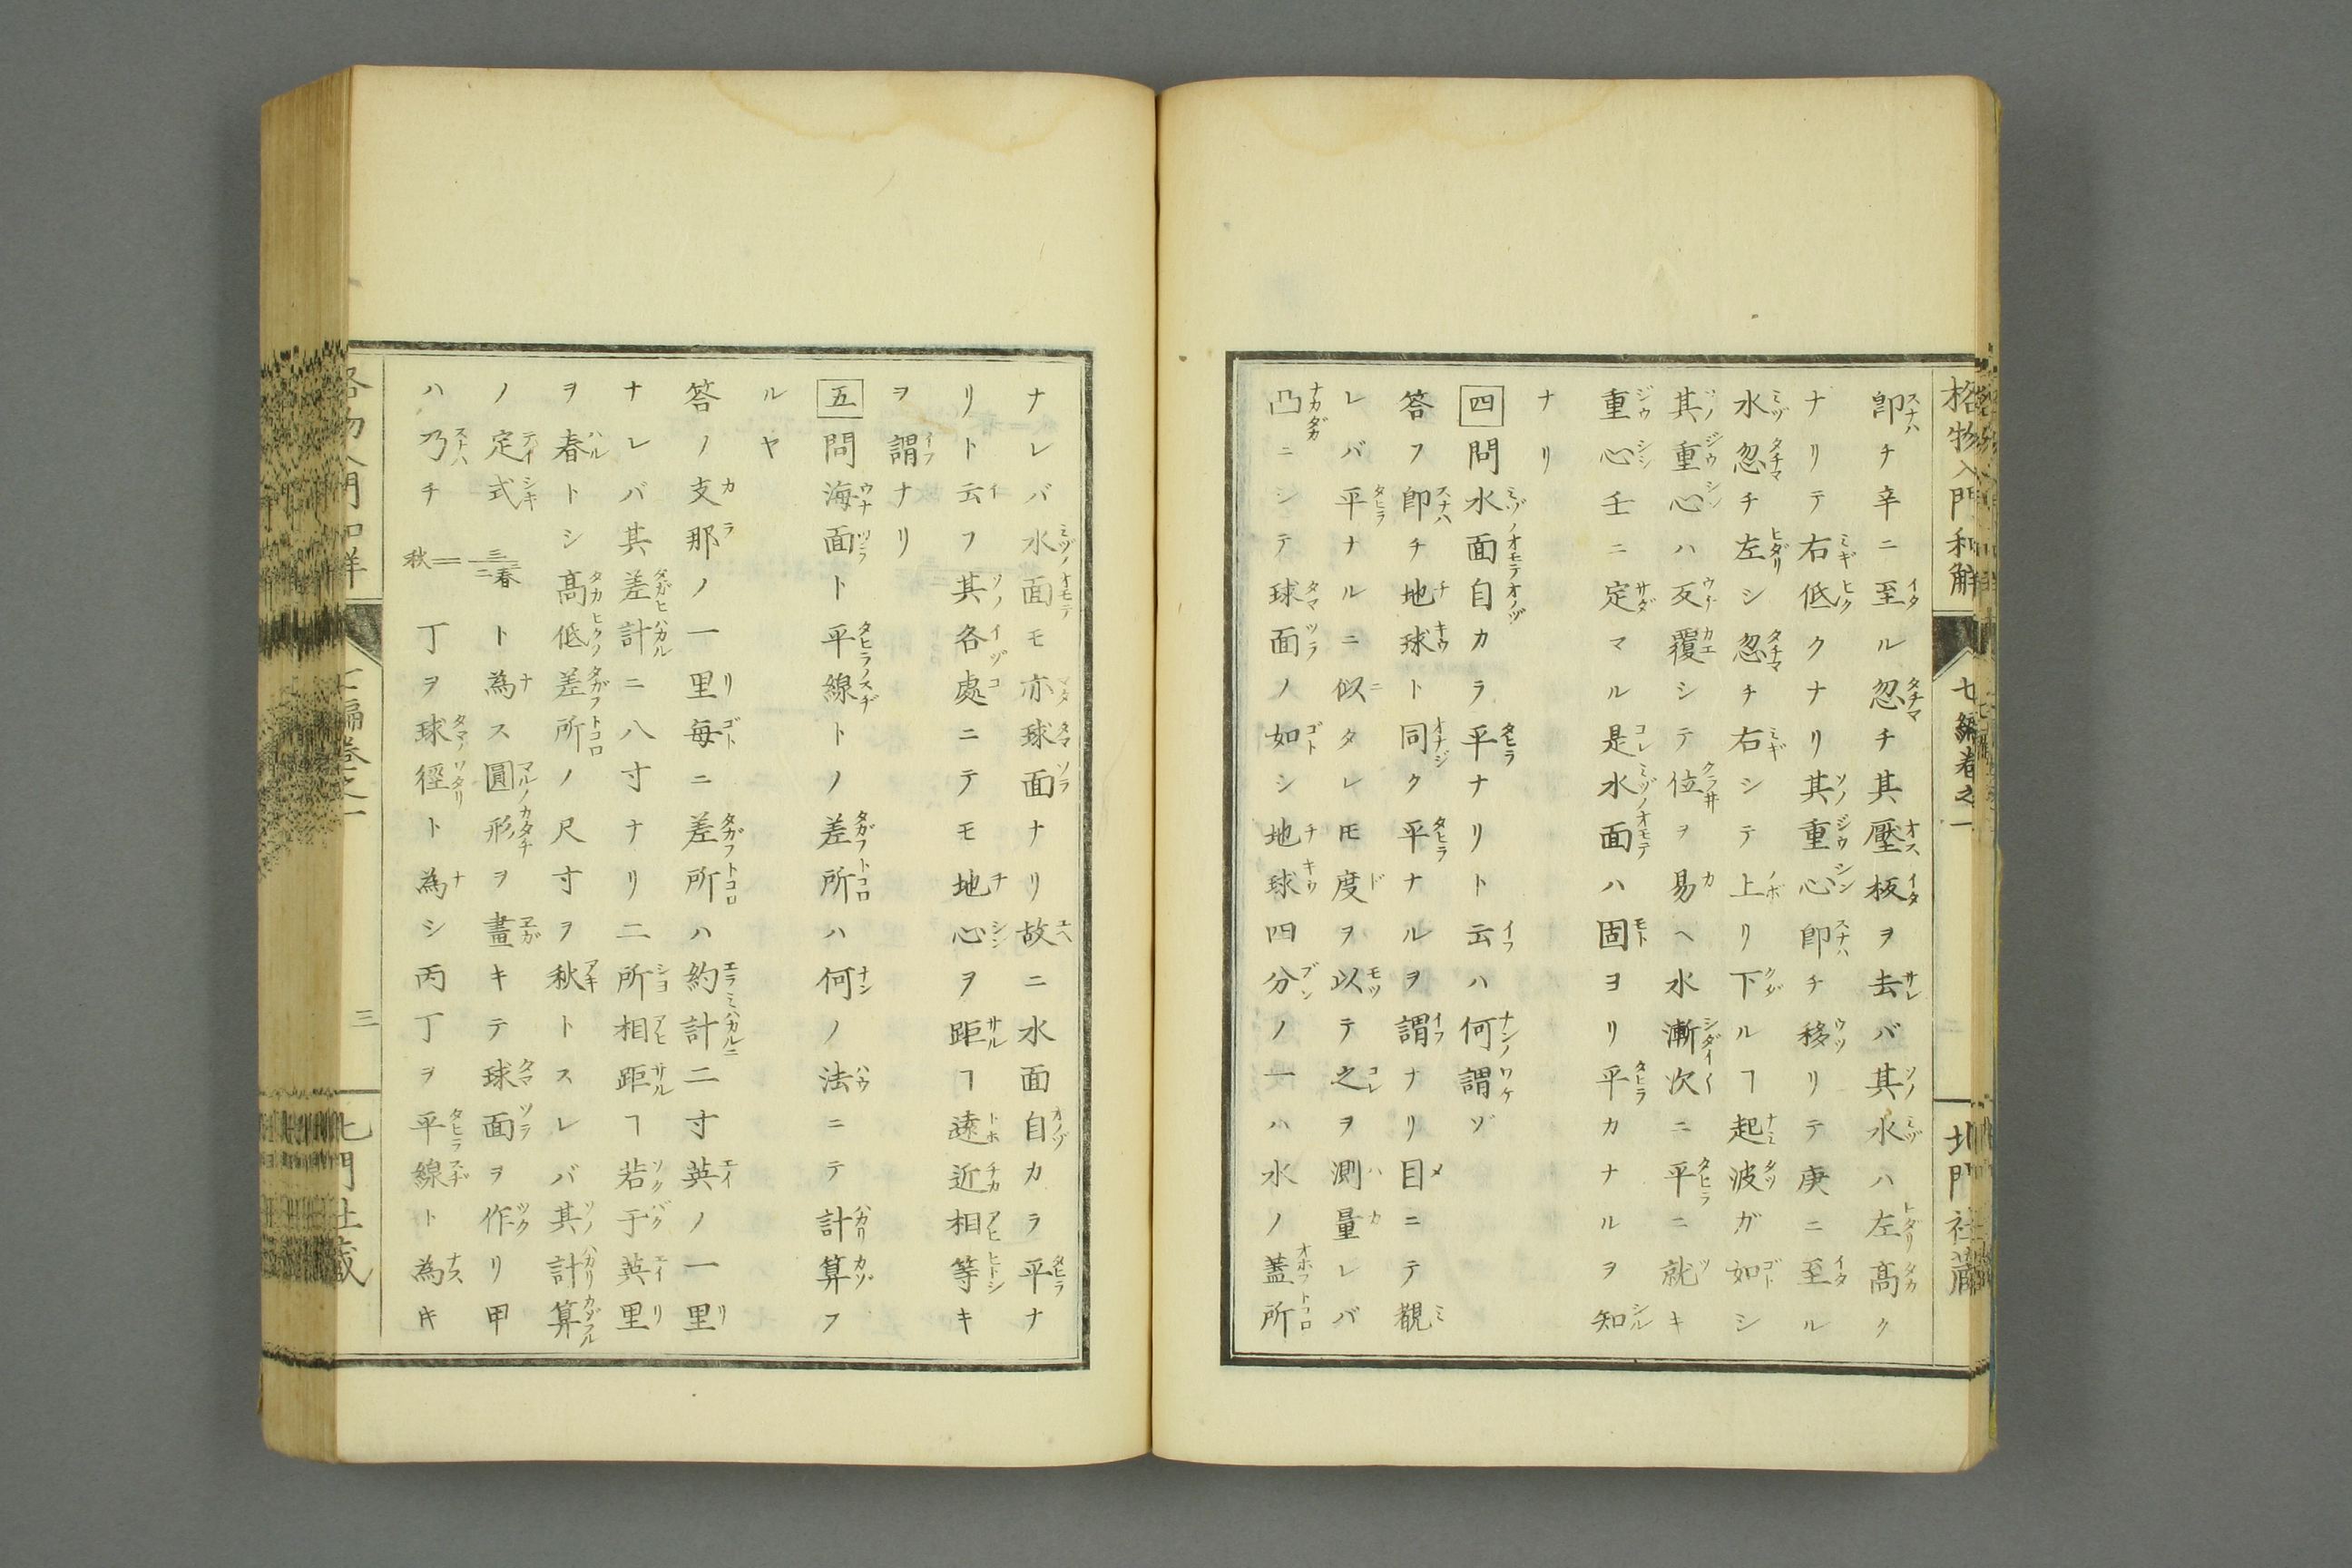 格物入門和解 七編卷之一 北門社藏
卽チ辛ニ至ル忽チ其壓板ヲ去バ其水ハ左高ク
ナリテ右低クナリ其重心卽チ移リテ庚ニ至ル
水忽チ左シ忽チ右シテ上リ下ルヿ起波ガ如シ
其重心ハ反覆シテ位ヲ易ヘ水漸次ニ平ニ就キ
重心壬ニ定マル是水面ハ固ヨリ平カナルヲ知
ナリ
四 問水面自カラ平ナリト云ハ何謂ゾ
答フ卽チ地球ト同ク平ナルヲ謂ナリ目ニテ觀
レバ平ナルニ似タレ𪜈度ヲ以テ之ヲ測量レバ
凸ニシテ球面ノ如シ地球四分ノ一ハ水ノ蓋所
ナレバ水面モ亦球面ナリ故ニ水面自カラ平ナ
リト云フ其各處ニテモ地心ヲ距ルヿ遠近相等キ
ヲ謂ナリ
五 問海面ト平線トノ差所ハ何ノ法ニテ計算フ
ルヤ
答ノ支那ノ一里每ニ差所ハ約計二寸英ノ一里
ナレバ其差計ニ八寸ナリ二所相距ヿ若于英里
ヲ春トシ高低差所ノ尺寸ヲ秋トスレバ其計算
ノ定式 三二春 ト為ス圓形ヲ畫キテ球面ヲ作リ甲
ハ乃チ 二秋 丁ヲ球徑ト為シ丙丁ヲ平線ト為キ
三